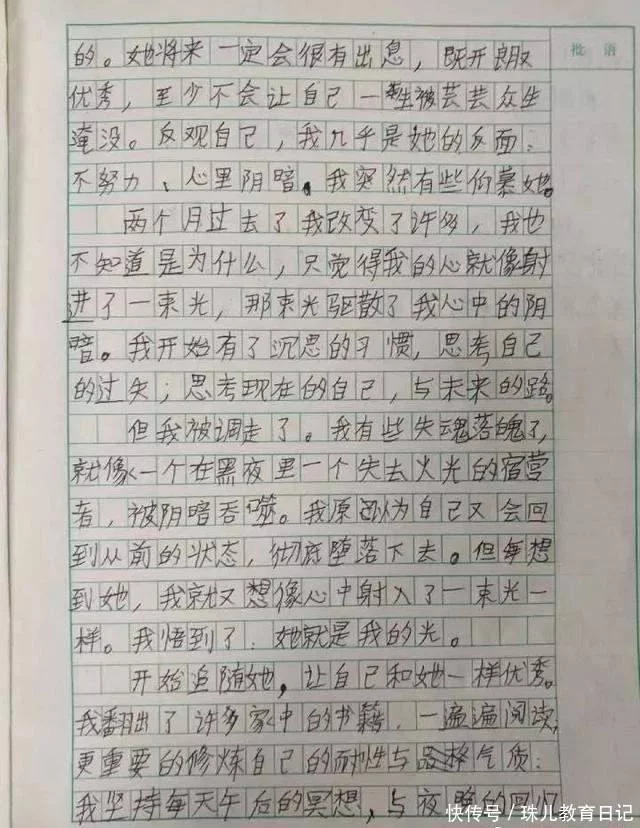 批 语
的。她将来一定会很有出息，既开朗又
优秀，至少不会让自己一生被芸芸众生
淹没。反观自己，我几乎是她的反面：
不努力、心里阴暗。我突然有些仰慕她。
两个月过去了我改变了许多，我也
不知道是为什么，只觉得我的心就像射
进了一束光，那束光驱散了我心中的阴
暗。我开始有了沉思的习惯，思考自己
的过失；思考现在的自己，与未来的路。
但我被调走了。我有些失魂落魄了，
就像一个在黑夜里一个失去火光的宿营
者，被阴暗吞噬。我原以为自己又会回
到从前的状态，彻底堕落下去。但每想
到她，我就又想像心中射入了一束光一
样。我悟到了：她就是我的光。
开始追随她，让自己和她一样优秀。
我翻出了许多家中的书籍，一遍遍阅读，
更重要的修炼自己的耐性与品格气质：
我坚持每天午后的冥想，与夜晚的回
快传号 / 珠儿教育日记